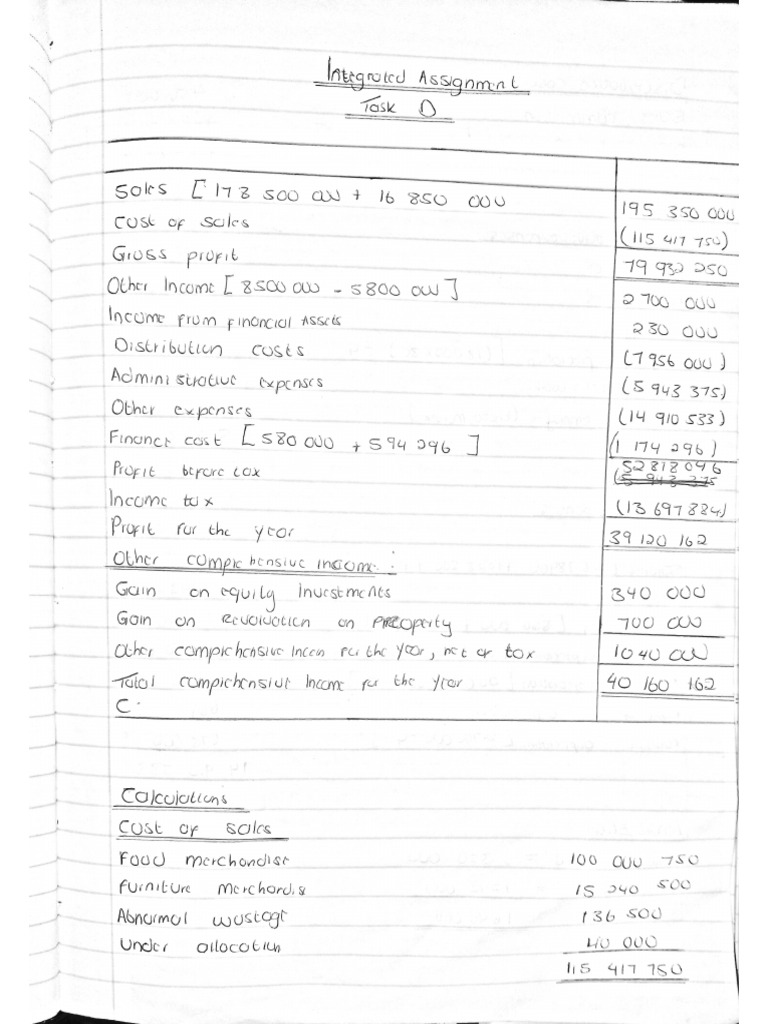 Integrated Assignment
Task D
Sales [178 500 000 + 16 850 000 195 350 000
Cost of sales (115 417 750)
Gross profit 79 932 250
Other Income [8500 000 - 5800 000] 2 700 000
Income from financial Assets 230 000
Distribution costs (7 956 000)
Administrative expenses (5 943 375)
Other expenses (14 910 533)
Finance cost [580 000 + 594 296] (1 174 296)
Profit before tax 52 818 046
Income tax (13 697 884)
Profit for the year 39 120 162
Other comprehensive income:
Gain on equity Investments 340 000
Gain on Revaluation on Property 700 000
Other comprehensive Incom for the year, net of tax 1 040 000
Total comprehensive Income for the year 40 160 162
C.
Calculations
Cost of sales
Food merchandise 100 000 750
Furniture merchandis 15 240 500
Abnormal wastage 136 500
Under allocation 40 000
115 417 750